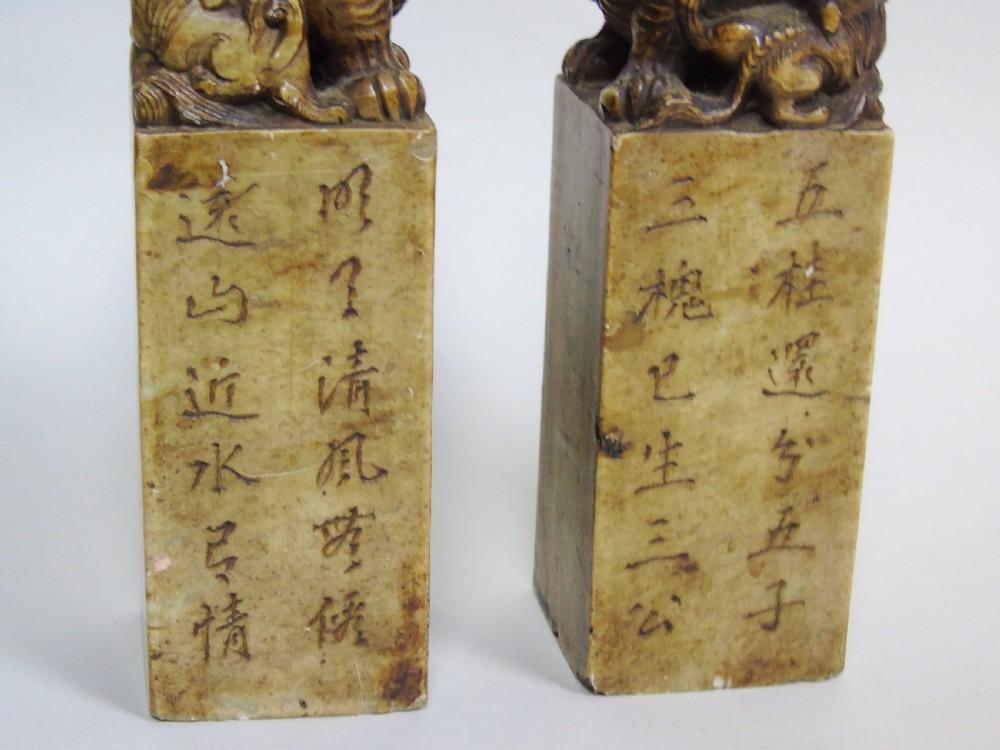 明月清風無價
遠山近水有情
五桂還分五子
三槐已生三公